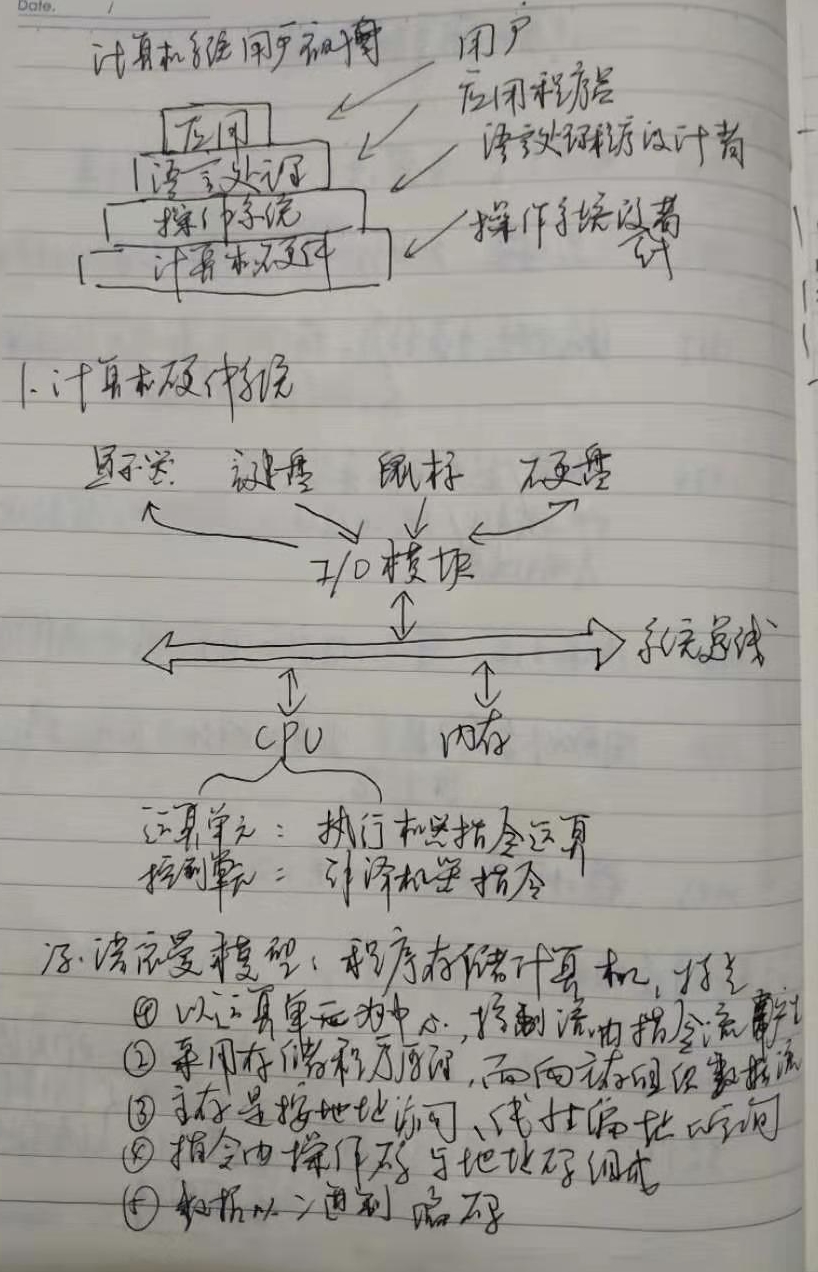 Date. /
计算机系统用户视图
用户
应用程序员
应用
语言处理程序设计者
语言处理
操作系统
操作系统设计者
计算机硬件
1. 计算机硬件系统
显示器 键盘 鼠标 硬盘
I/O模块
系统总线
CPU 内存
运算单元：执行机器指令运算
控制单元：引译机器指令
冯·诺依曼模型：程序存储计算机，特点
① 以运算单元为中心，控制流由指令流产生
② 采用存储程序原理，面向主存组织数据流
③ 主存是按地址访问、线性编址的空间
④ 指令由操作码与地址码组成
⑤ 数据以二进制编码